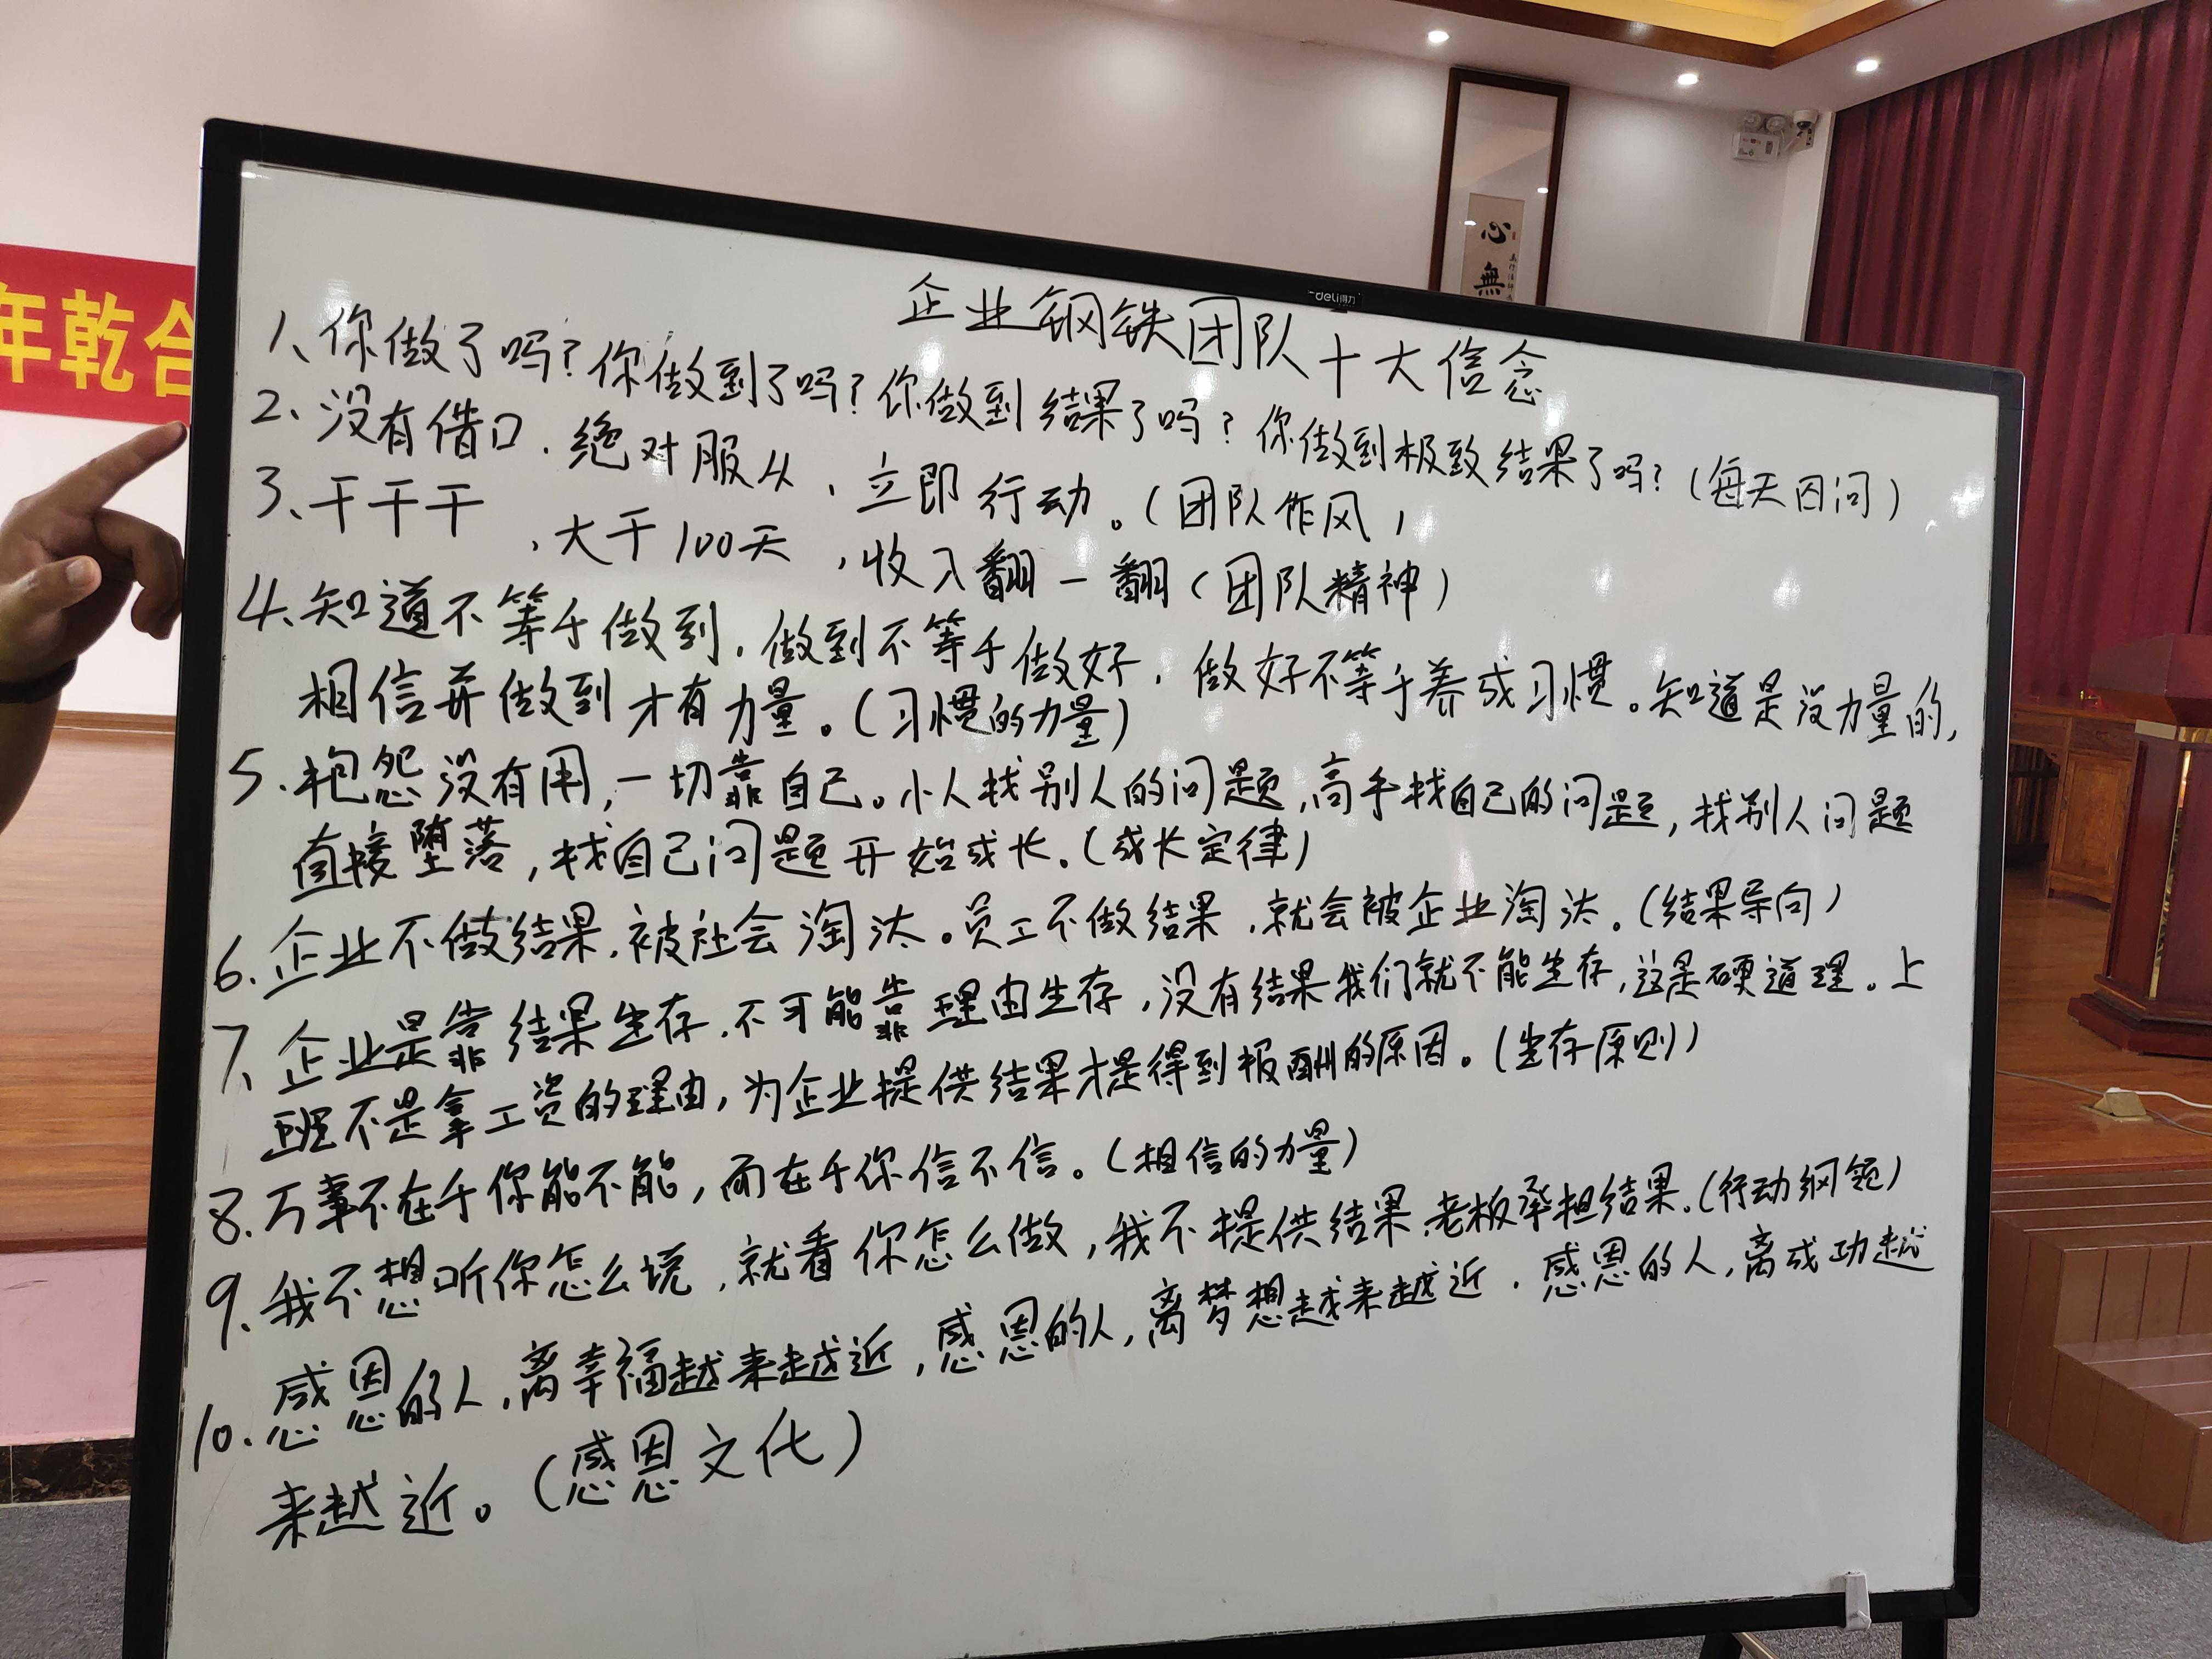 年乾合
心無
deli得力
企业钢铁团队十大信念
1、你做了吗?你做到了吗?你做到结果了吗?你做到极致结果了吗?(每天四问)
2、没有借口、绝对服从、立即行动。(团队作风)
3、干干干、大干100天,收入翻一翻(团队精神)
4、知道不等于做到,做到不等于做好,做好不等于养成习惯。知道是没力量的,
相信并做到才有力量。(习惯的力量)
5、抱怨没有用,一切靠自己。小人找别人的问题,高手找自己的问题,找别人问题
直接堕落,找自己问题开始成长。(成长定律)
6、企业不做结果,被社会淘汰。员工不做结果,就会被企业淘汰。(结果导向)
7、企业是靠结果生存,不可能靠理由生存,没有结果我们就不能生存,这是硬道理。上
班不是拿工资的理由,为企业提供结果才是得到报酬的原因。(生存原则)
8、万事不在于你能不能,而在于你信不信。(相信的力量)
9、我不想听你怎么说,就看你怎么做,我不提供结果,老板承担结果。(行动纲领)
10、感恩的人,离幸福越来越近,感恩的人,离梦想越来越近,感恩的人,离成功越
来越近。(感恩文化)